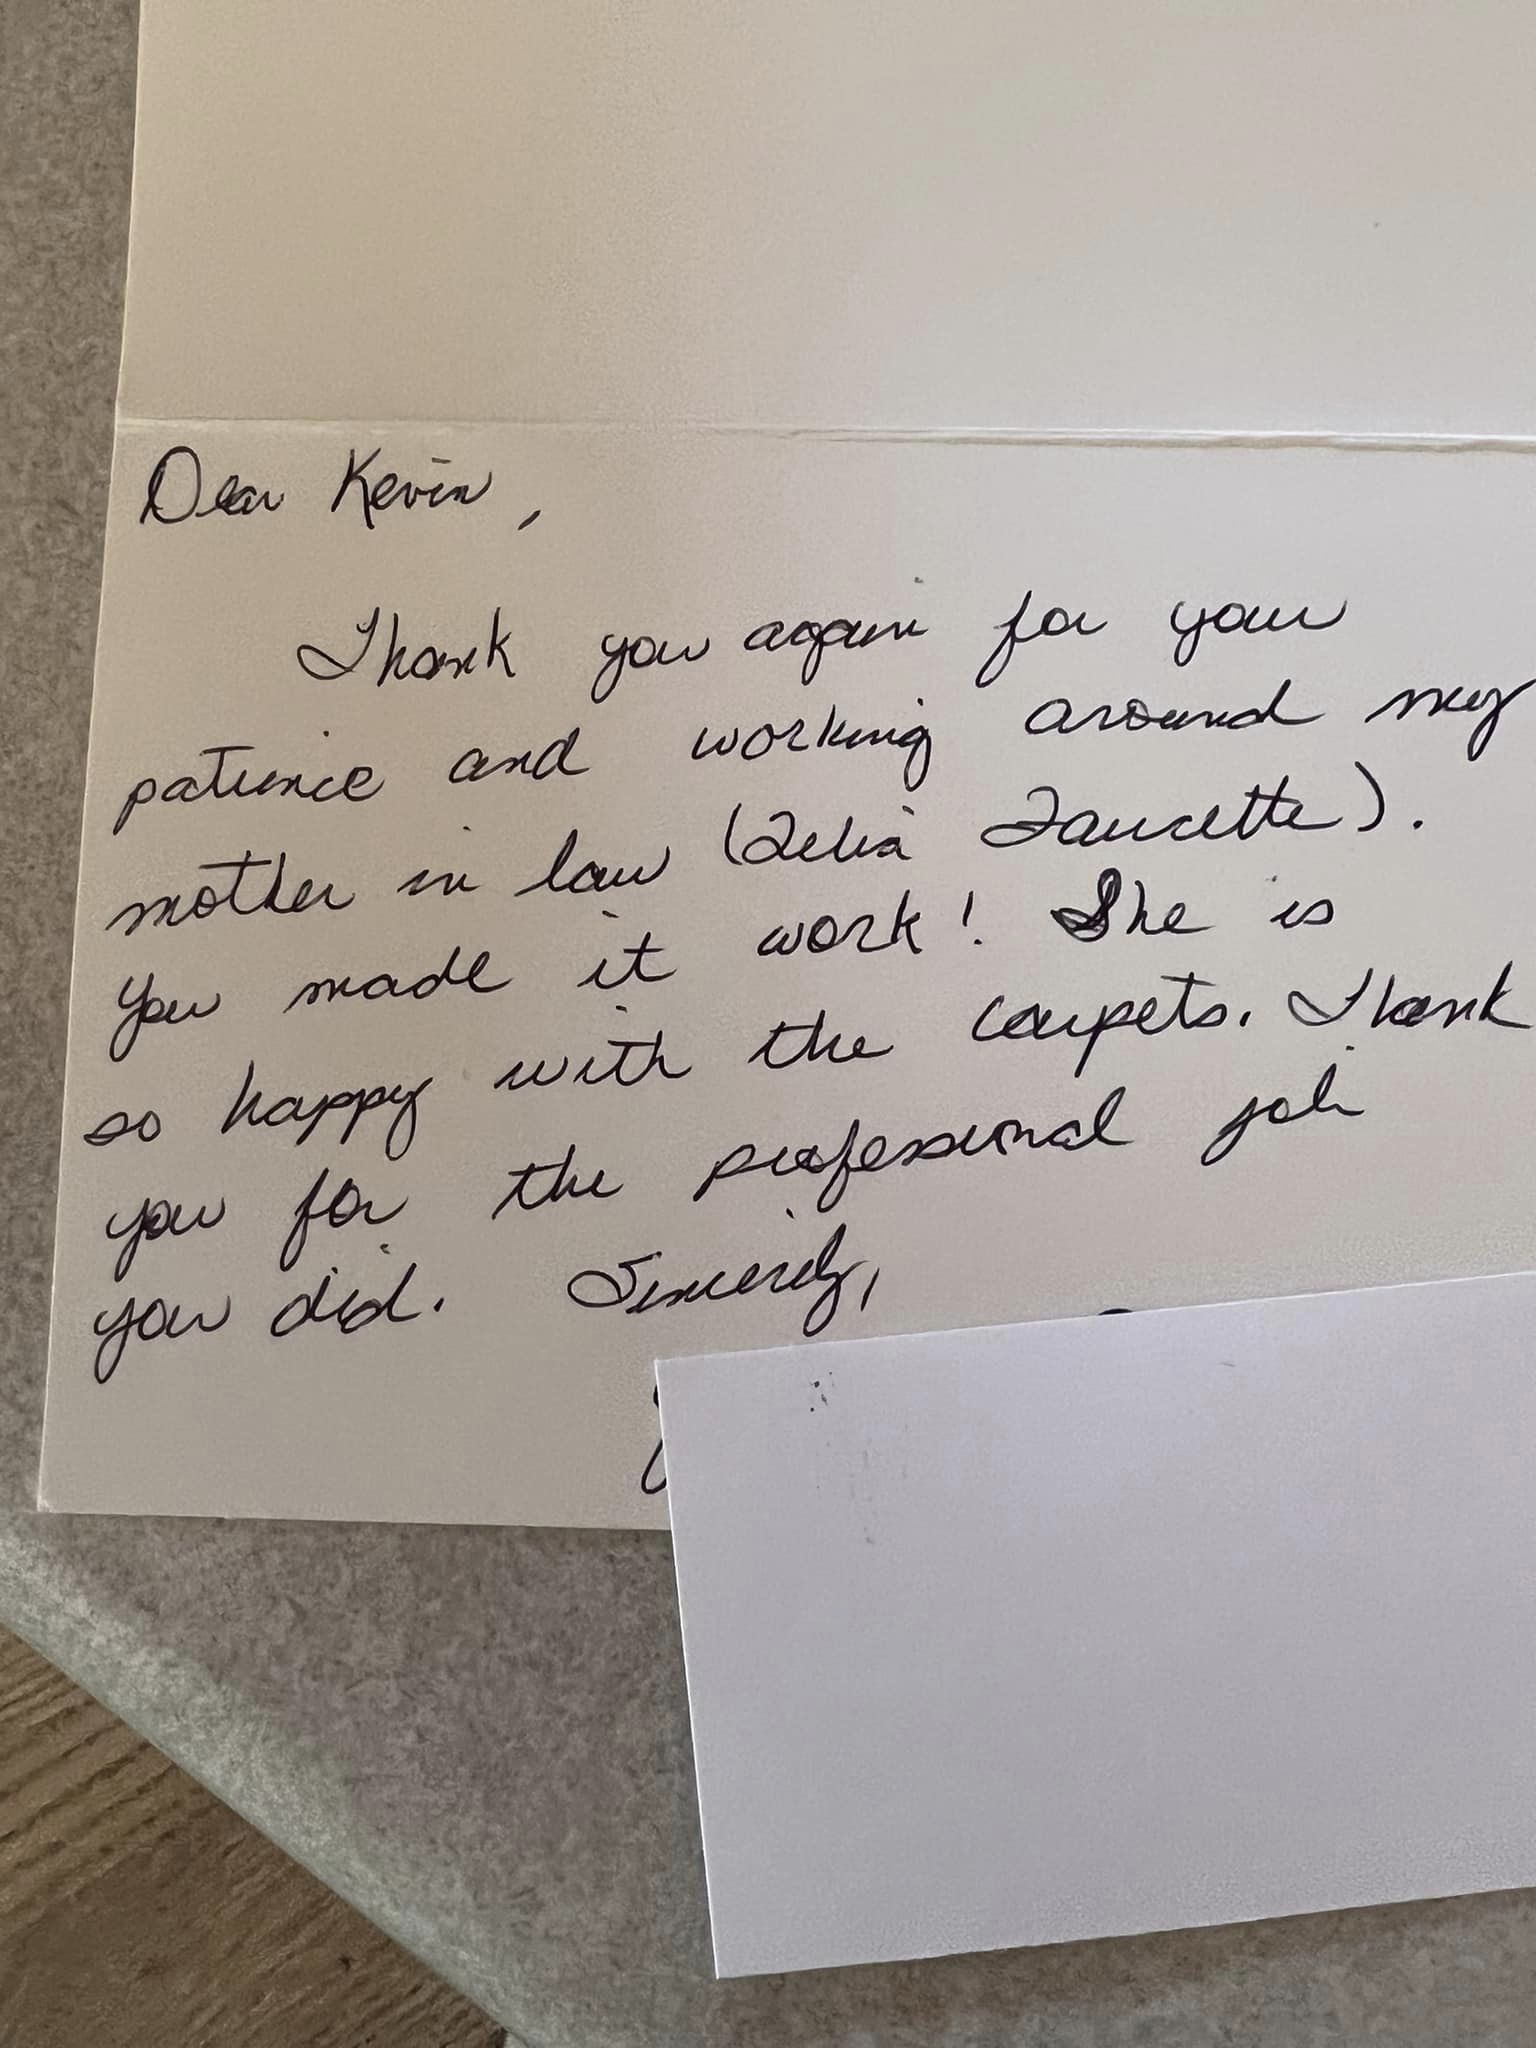 Dear Kevin,
Thank you again for your
patience and working around my
mother in law (Zelia Faucette).
You made it work! She is
so happy with the carpets. Thank
you for the professional job
you did. Sincerely,